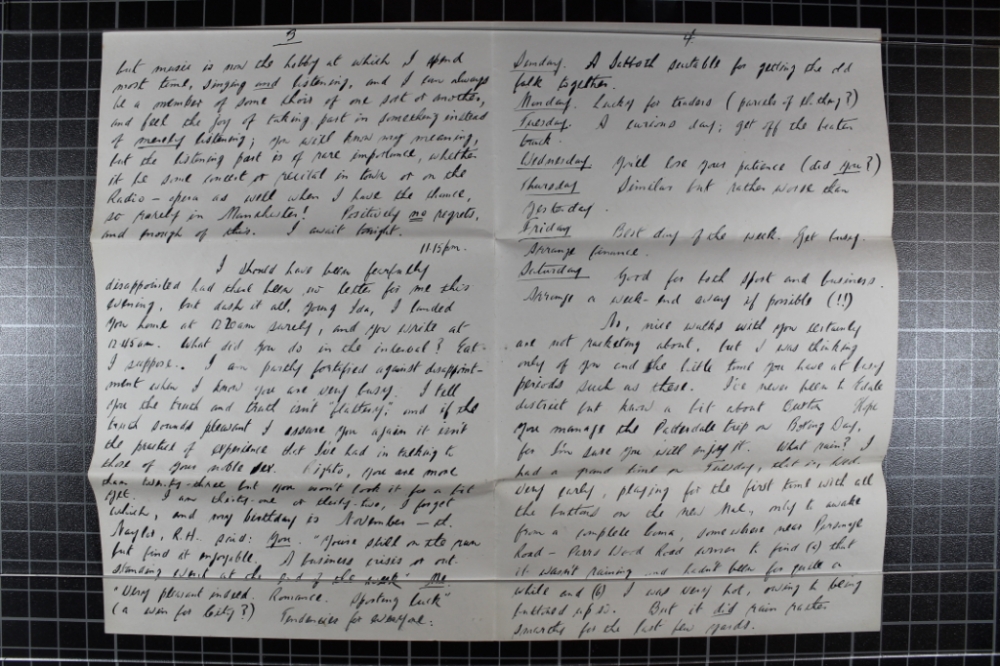 3
but music is now the hobby at which I spend
most time, singing and listening, and I can always
be a member of some choir of one sort or another,
and feel the joy of taking part in something instead
of merely listening; you will know my meaning,
but the listening part is of rare importance, whether
it be some concert or recital in town or on the
Radio - opera as well when I have the chance,
so rarely in Manchester! Positively no regrets,
and enough of this. I await tonight.
11.15pm.
I should have been fearfully
disappointed had there been no letter for me this
evening, but dash it all, young Ida, I landed
you home at 12.20am surely, and you write at
12.45am. What did you do in the interval? Eat-
I suppose. I am partly fortified against disappoint-
ment when I know you are very busy. I tell
you the truth and truth isn't flattery; and if the
truth sounds pleasant I assure you again it isn't
the practice of experience that I've had in talking to
those of your noble sex. Rights, you are more
than twenty-three but you won't look it for a bit
yet. I am thirty-one or thirty-two, I forget
which, and my birthday is November - th.
Naylor, R.H. said: You. "You're still on the run
but find it enjoyable. A business crisis or out-
standing event at the end of the week" Me
"Very pleasant indeed. Romance. Sporting luck"
(a win for City?) Tendencies for everyone:
4.
Sunday. A Sabbath suitable for getting the old
folk together.
Monday. Lucky for traders (parcels of)
Tuesday. A curious day; get off the beaten
track.
Wednesday You'll lose your patience (did you?)
Thursday Similar but rather worse than
yesterday.
Friday Best day of the week. Get busy.
Arrange finance.
Saturday Good for both sport and business.
Arrange a week-end away if possible (!!)
No, nice walks with you certainly
are not racketing about, but I was thinking
only of you and the little time you have at busy
periods such as these. I've never been to
district but know a bit about Hope
you manage the Patterdale trip on Boxing Day,
for I'm sure you will enjoy it. What rain? I
had a grand time on Tuesday, that is, Wed.
very early, playing for the first time with all
the buttons on the new Mac, only to awake
from a complete coma, somewhere near Parsonage
Road - Parrs Wood Road corner to find (a) that
it wasn't raining and hadn't been for quite a
while and (b) I was very hot, owing to being
buttoned up so. But it did rain rather
smartly for the last few yards.